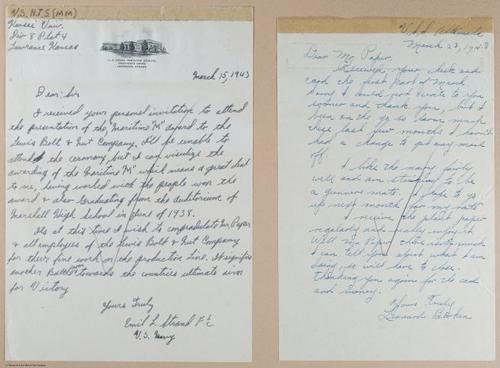 U.S. N.T.S (M M)
Kansas Univ.
Div 8 Plat 4
Lawrence Kansas
March 15, 1943
Dear: Sir
I received your personal invitation to attend
the presentation of the, "Maritime M" award to the
Lewis Bolt & Nut Company, I'll be unable to
attend the ceremony, but I can visualize the
awarding of the Maritime "M" which means a great deal
to me, having worked with the people who won the
award & also Graduating from the auditorium of
Marshall High School in Class of 1938.
It's at this time I wish to congradulate Mr Paper
& all employees of the Lewis Bolt & Nut Company
for their fine work on the productive line. It signifies
another Battle won towards the countries ultimate aim
for Victory
Yours Truly
Emil L Strand F 2/C
U.S. Navy
March 23, 1943
Dear Mr Paper,
I received your check and
card the first part of March
Sorry I could not write to you
sooner and thank you, but I
been on the go so dam much
these last few months I havent
had a change to get any mail
off.
I like the navy fairly
well and am studying to be
a gunners mate. I hope to go
up next month for my rate.
I receive the plant paper
regularly and really enjoy it
Well Mr Paper
I can tell you about what I am
doing, so will have to close.
thanking you again for the card
and money.
Yours Truly
Leonard